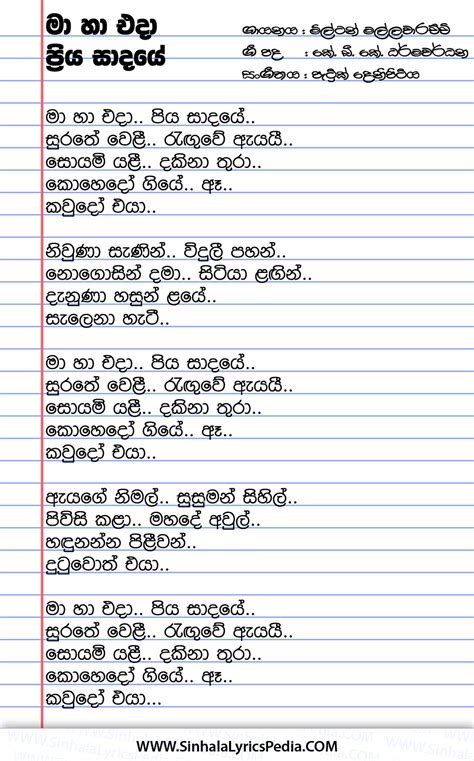 මා හා එදා
ප්‍රිය සාදයේ
ගායනය : මිල්ටන් මල්ලවාරච්චි
ගී පද : කේ. ඩී. කේ. ධර්මවර්ධන
සංගීතය : පැට්‍රික් දෙනිපිටිය
මා හා එදා.. පිය සාදයේ..
සුරතේ වෙළී.. රැඟුවේ ඇයයී..
සොයමි යළී.. දකිනා තුරා..
කොහෙදෝ ගියේ.. ඈ..
කවුදෝ එයා..
නිවුණා සැණින්.. විදුලී පහන්..
නොගොසින් දමා.. සිටියා ළඟින්..
දැනුණා හසුන් ළයේ..
සැලෙනා හැටී..
මා හා එදා.. පිය සාදයේ..
සුරතේ වෙළී.. රැඟුවේ ඇයයී..
සොයමි යළී.. දකිනා තුරා..
කොහෙදෝ ගියේ.. ඈ..
කවුදෝ එයා..
ඇයගේ නිමල්.. සුසුමන් සිහිල්..
පිවිසි කළා.. මහදේ අවුල්..
හඳුනන්න පිළීවන්..
දුටුවොත් එයා..
මා හා එදා.. පිය සාදයේ..
සුරතේ වෙළී.. රැඟුවේ ඇයයී..
සොයමි යළී.. දකිනා තුරා..
කොහෙදෝ ගියේ.. ඈ..
කවුදෝ එයා...
www.SinhalaLyricsPedia.COM